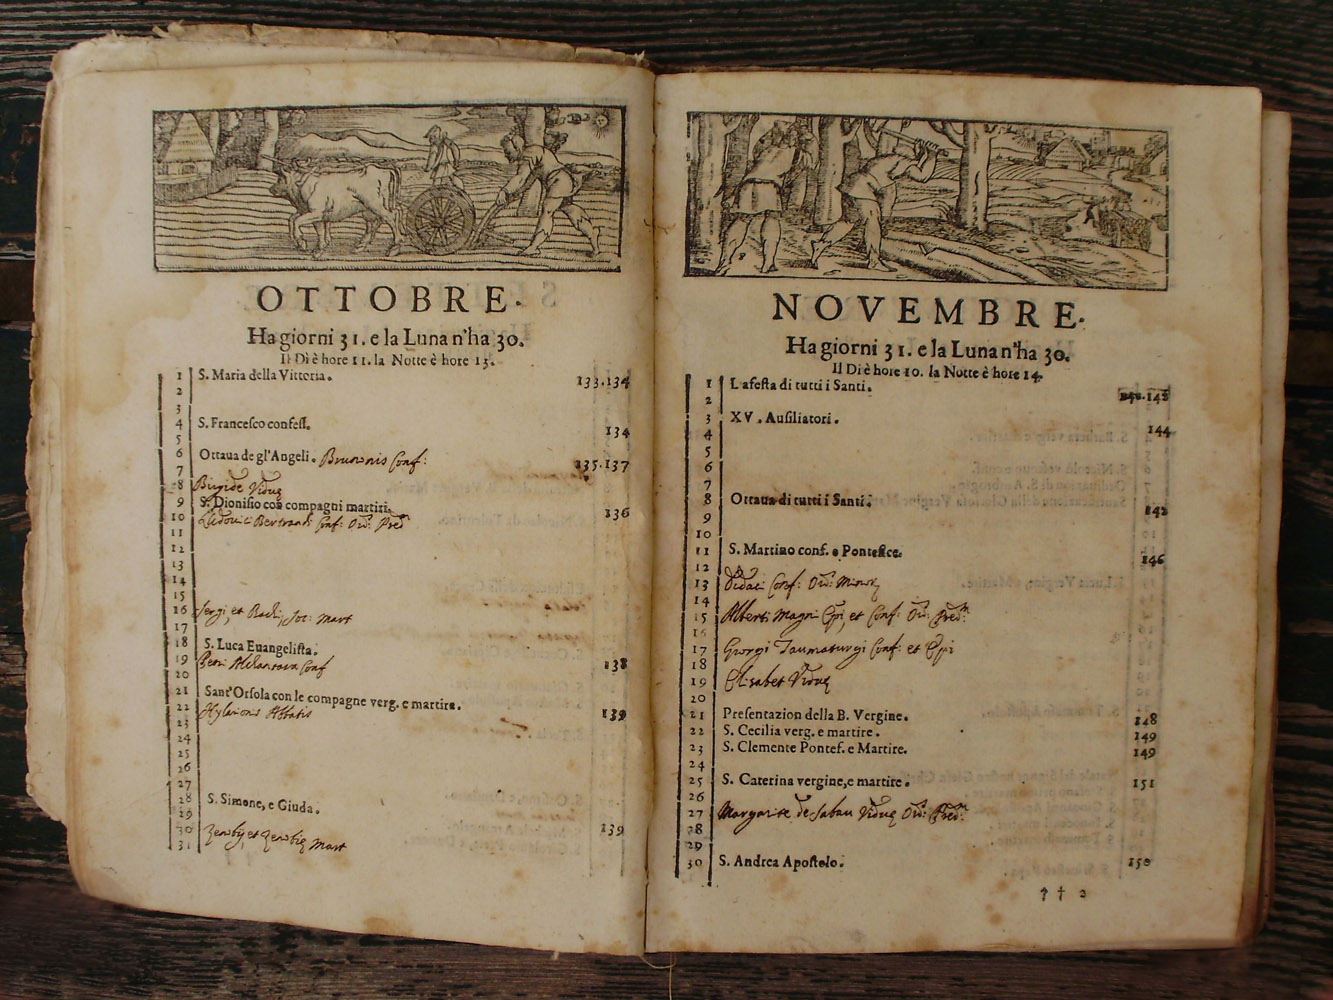 OTTOBRE.
Ha giorni 31. e la Luna n'ha 30.
Il Dì è hore 11. la Notte è hore 13.
1 S. Maria della Vittoria. 133.134
2
3
4 S. Francesco confess. 134
5
6 Ottaua de gl'Angeli. Brunonis Conf: 135.137
7
8 Birgide Viduę
9 S. Dionisio cos compagni martiri. 136
10 Ludouici Bertrandi Conf: Ord: Pred
11
12
13
14
15
16 Sergi, et Bachi, soc: Mart
17
18 S. Luca Euangelista. 138
19 Petri Alcantara Conf
20
21 Sant'Orsola con le compagne verg. e martire. 139
22 Hylarionis Abbatis
23
24
25
26
27
28 S. Simone, e Giuda. 139
29
30 Zenobij, et Zenobię Mart
31
NOVEMBRE.
Ha giorni 31. e la Luna n'ha 30.
Il Dì è hore 10. la Notte è hore 14.
1 La festa di tutti i Santi. 142
2
3 XV. Ausiliatori. 144
4
5
6
7
8 Ottaua di tutti i Santi. 142
9
10
11 S. Martino conf. e Pontefice. 146
12
13 Didaci Conf: Ord: Minor
14
15 Alberti Magni Epi, et Conf: Ord: Pred:
16
17 Gregorij Taumaturgi Conf: et Epi
18
19 Elisabet Viduę
20
21 Presentazion della B. Vergine. 148
22 S. Cecilia verg. e martire. 149
23 S. Clemente Pontef. e Martire. 149
24
25 S. Caterina vergine, e martire. 151
26
27 Margarite de Sabau Viduę Ord: Pred:
28
29
30 S. Andrea Apostolo. 150
† † 2